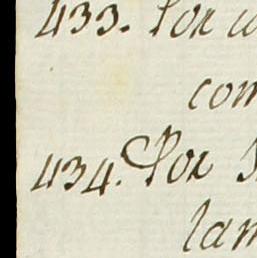 433. Por
com
434. Por
lam